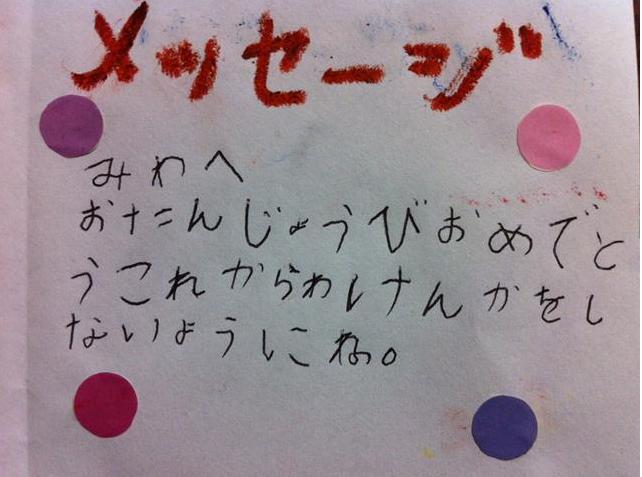 メッセージ
みわへ
おたんじょうびおめでと
うこれからわけんかをし
ないようにね。